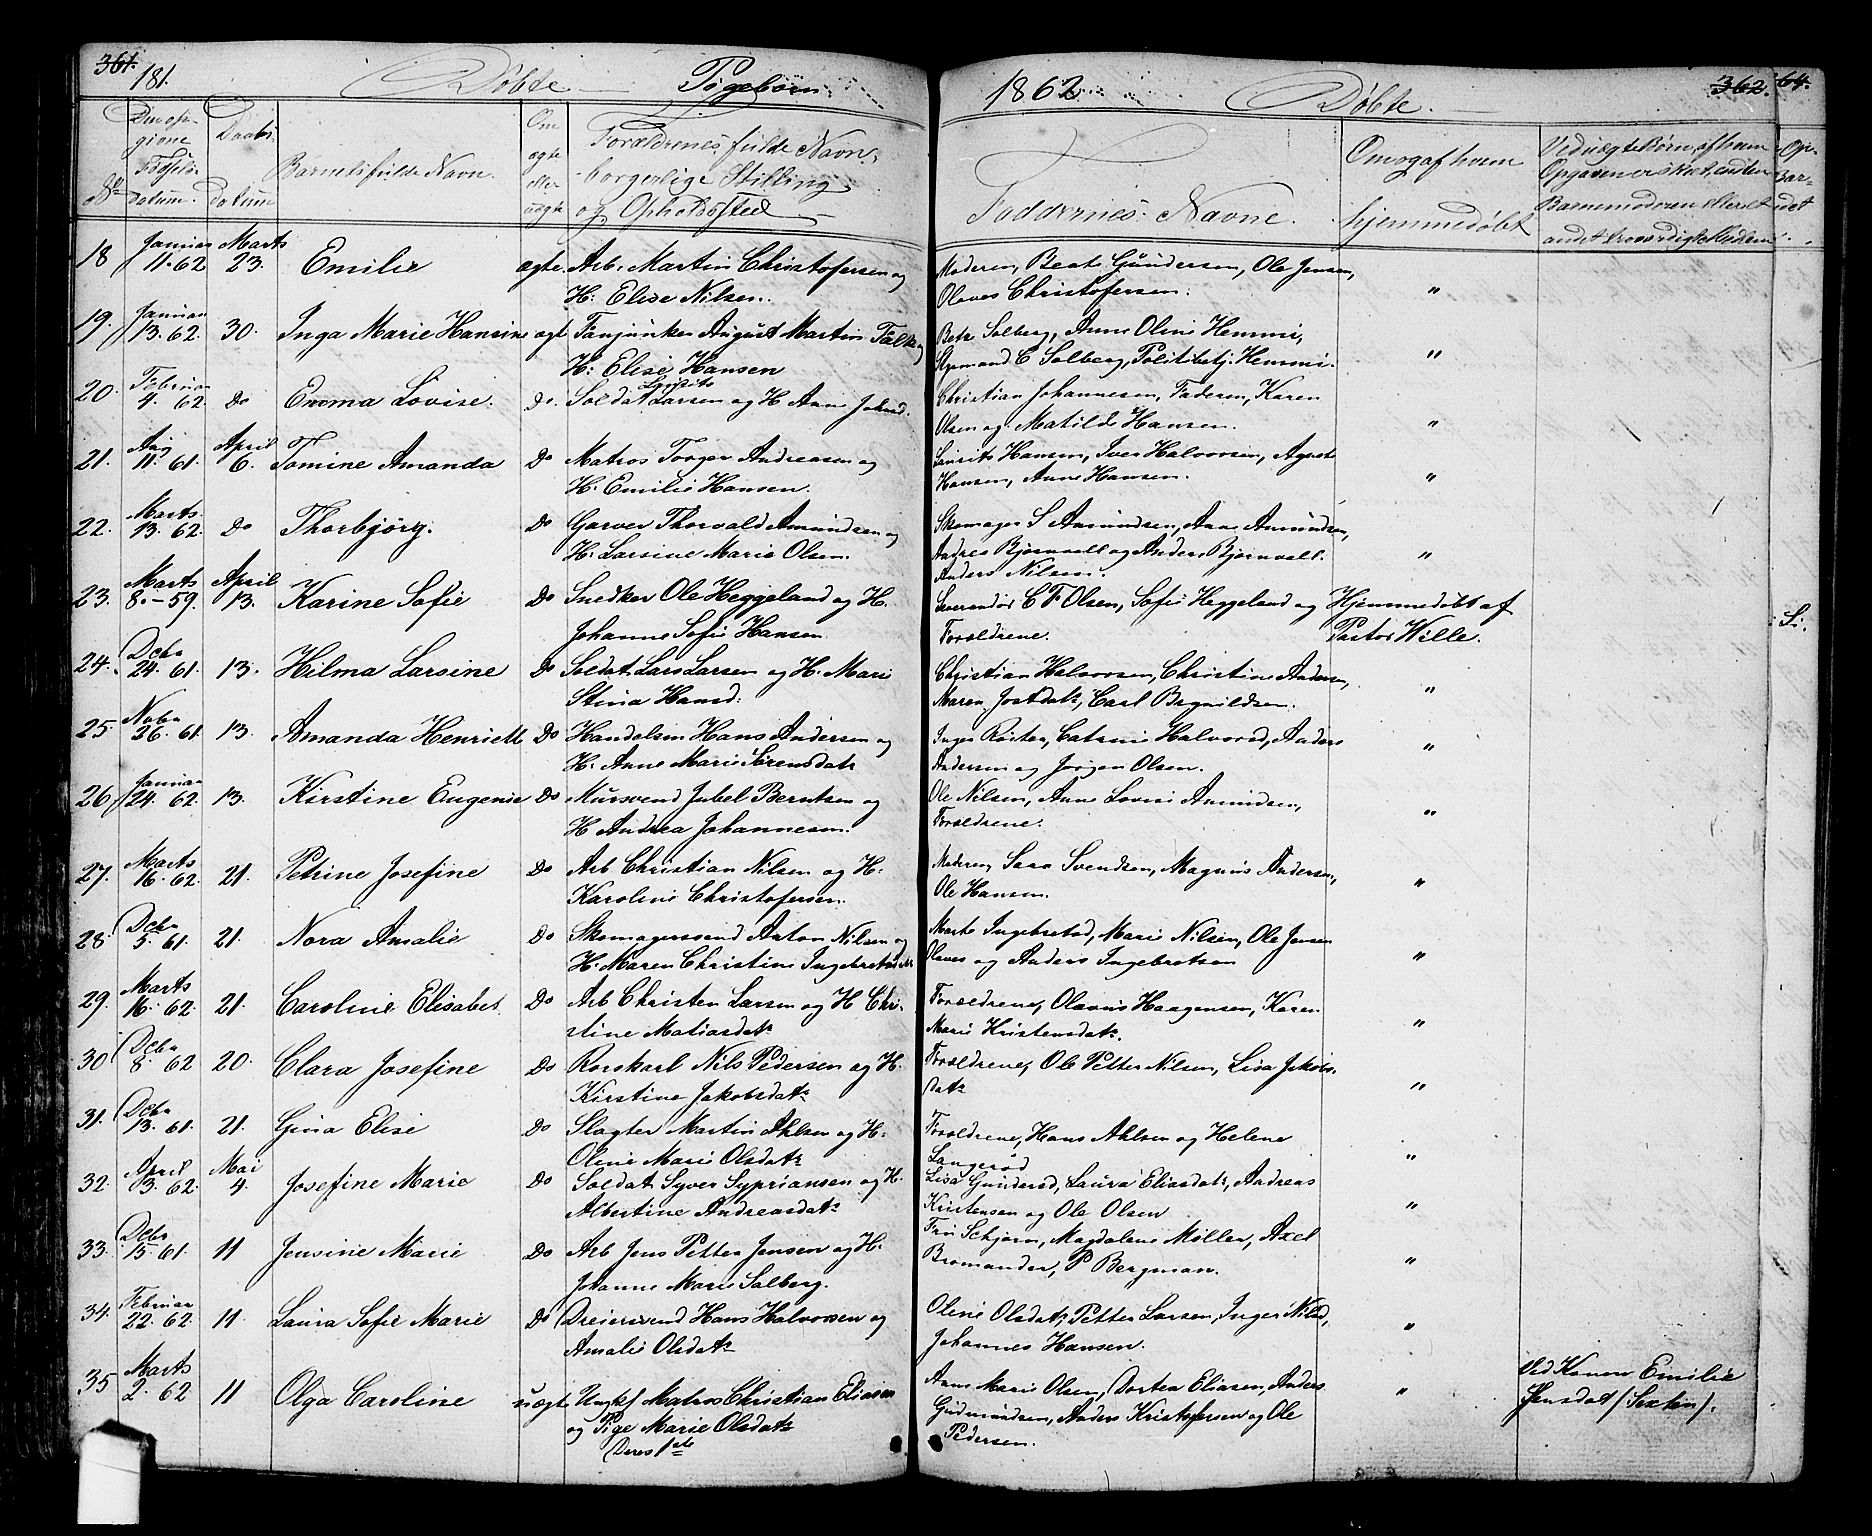 361. 181. Døbte Pigebørn 1862 Døbte. 362. 64.
Den opgivne Fødsels datum. Daabs datum Barnets fulde Navn. Om ægte eller uægte Forældrenes fulde Navn, borgerlige Stilling og Opholdssted Faddernes Navne. Om og af hvem hjemmedøbt Ved uægte Børn af hvem Opgaven er skeet, enten Barnemoderen eller et andet troværdigt Medium.
18 Januar 11. 62 Marts 23. Emilie ægte. Arb. Martin Christofersen og Moderen, Beate Gundersen, Ole Jensen,
H: Elise Nilsen. Olaves Christofersen. "
19. Januar 13. 62. 30. Inga Marie Hansine ægt. Fanjunker August Martin Falk og Betr Solberg, Anne Oline Hemmi,
H: Elise Hansen Styrmand C Solberg, Politibetj. Hemmi. "
20. Februar 4. 62. Do Emma Lovise. Do. Soldat Lauritz Larsen og H Anne Johnsd. Christian Johannesen, Faderen, Karen
Olsen og Matilde Hansen. "
21. Aug 11. 61. April 6. Tomine Amanda Do Matros Torger Andreasen og Laurits Hansen, Iver Halvorsen, Agnete
H. Emilie Hansen. Hansen, Anne Hansen. "
22. Marts 13. 62. Do Thorbjørg. Do Garver Thorvald Amundsen og Skomager S Amundsen, Anne Amundsen,
H. Larsine Marie Olsen. Andrea Bjørnvall og Anders Bjørnvall.
Anders Nilsen. "
23. Marts 8. - 59. April 13. Karine Sofie Do Snedker Ole Heggeland og H. C F Olsen, Sofie Heggeland og Hjemmedøbt af
Johanne Sofie Hansen Forældrene. Pastor Wille.
24. Decbr 24. 61. 13. Hilma Larsine Do Soldat Lars Larsen og H. Marie Christian Halvorsen, Christine Andersen,
Stina Hansd: Maren Jostdatr, Carl Brynildsen. "
25 Novbr 26. 61. 13. Amanda Henriette Do Handelsm Hans Andersen og Inger Røster, Catrine Halvorsd, Anders
H. Anne Marie Sørensdatr Andersen og Jørgen Olsen. "
26 Januar 24. 62. 13. Kirstine Eugenie Do Mursvend Jubel Berntsen og Ole Nilsen, Anne Lovise Amundsen,
H Andrea Johannesen. Forældrene. "
27. Marts 16. 62. 21. Petrine Josefine Do Arb Christian Nilsen og H. Moderen, Sara Svendsen, Magnus Andersen,
Karoline Christofersen. Ole Hansen. "
28. Decbr 5. 61. 21. Nora Amalie Do Skomagersvend Anton Nilsen og Marte Ingebretsd, Marie Nilsen, Ole Jensen
H. Maren Christine Ingebretsdatr Olaves og Anders Ingebretsen "
29. Marts 16. 62. 21. Caroline Elisabet. Do Arb Christen Larsen og H Chri- Forældrene, Olavus Haagensen, Karen
stine Matiasdatr Marie Kristensdatr. "
30 Decbr 8 62 20. Clara Josefine Do Rorskarl Nils Pedersen og H. Forældrene, Ole Petter Nilsen, Lisa Jakobs-
Kirstine Jakobsdatr datr "
31. Decbr 13. 61. 21. Gina Elise Do Slagter Martin Ahlsen og H. Forældrene, Hans Ahlsen og Helene
Oline Marie Olsdatr Langerød "
32. April 3. 62. Mai 4. Josefine Marie Do Soldat Syver Sypriansen og H. Lisa Gundersd, Laura Eliasdatr, Andreas
Albertine Andreasdatr Kristensen og Ole Olsen "
33. Decbr 15. 61. 11 Jensine Marie Do Arb Jens Petter Jensen og H. Fru Schjørn, Magdalene Møller, Axel
Johanne Marie Salberg. Bromander, P Bergman. "
34. Februar 22. 62 11 Laura Sofie Marie Do Dreiersvend Hans Halvorsen og Oline Olsdatr, Petter Larsen, Inger Nilsd,
Amalie Olsdatr Johannes Hansen. "
35 Marts 2. 62 11 Olga Caroline uægt. Ungkf Matros Christian Eliasen Anne Marie Olsen, Dortea Eliasen, Anders " Ved Konen Emilie
og Pige Marie Olsdatr Gudmundsen, Anders Kristofersen og Ole Jensdat (Sexten).
Deres 1ste Pedersen.